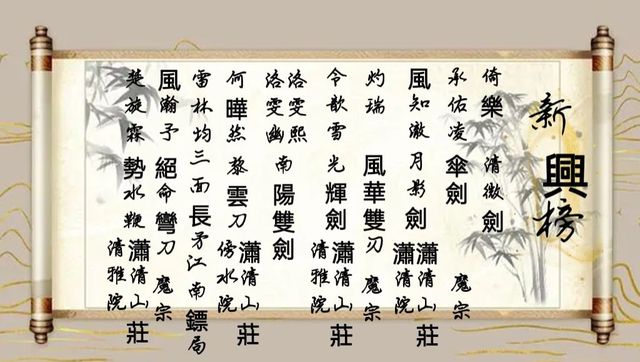 新興榜
倚樂 清微劍
承佑凌 傘劍 魔宗
風知澈 月影劍 瀟清山莊 清政院
灼瑞 風華雙刃 魔宗
令歆雪 光輝劍 瀟清山莊 清雅院
洛雯熙 洛雯幽 南陽雙劍
何曄然 黎雲刀 瀟清山莊 傍水院
雷林均 三面長矛 江南鏢局
風瀚予 絕命彎刀 魔宗
楚旋霖 勢水鞭 瀟清山莊 清雅院